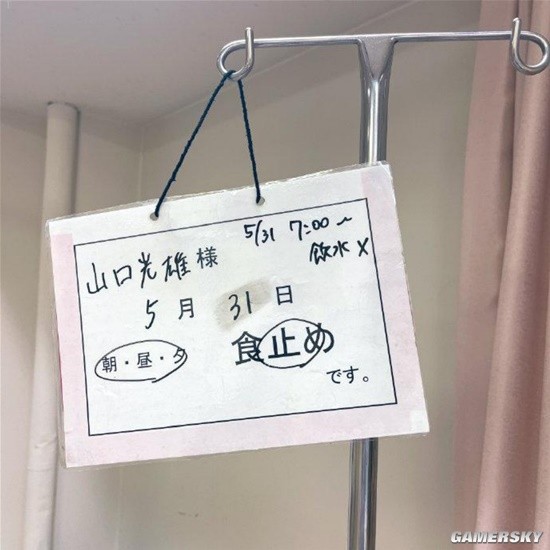 5/31 7:00〜
飲水 X
山口光雄様
5月31日
朝・昼・夕
食止め
です。
GAMERSKY